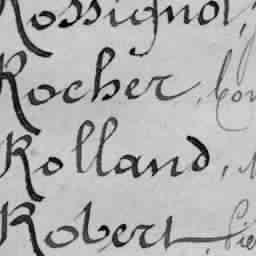 Rossignol,
Rocher,
Rolland,
Robert,